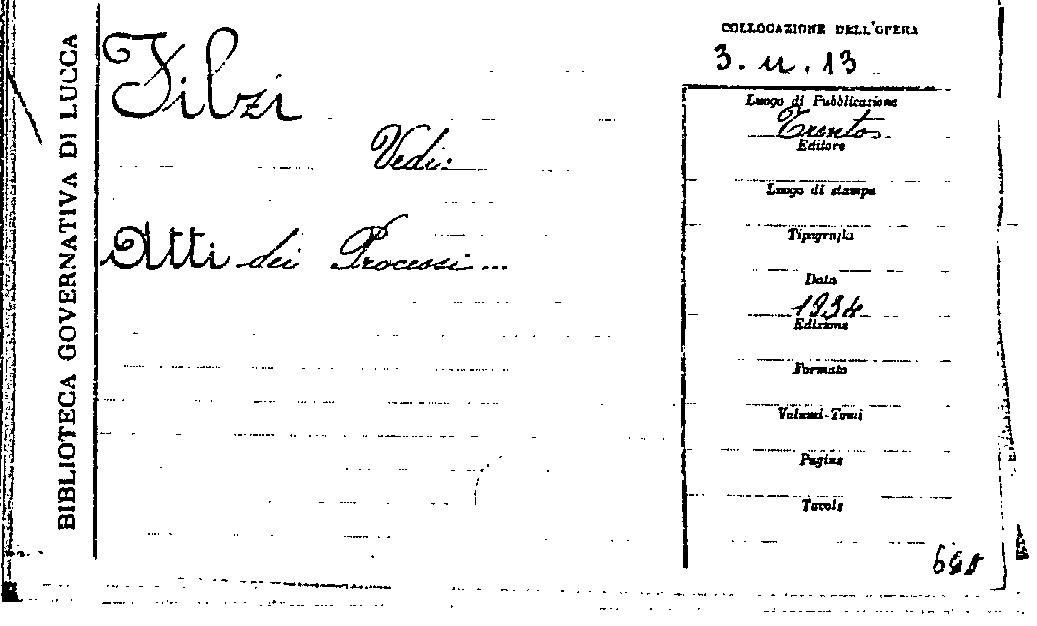 BIBLIOTECA GOVERNATIVA DI LUCCA
Filzi
Vedi:
Atti dei Processi...
COLLOCAZIONE DELL'OPERA
3. u. 13
Luogo di Pubblicazione
Trento
Editore
Luogo di stampa
Tipografia
Data
1934
Edizione
Formato
Volumi-Tomi
Pagine
Tavole